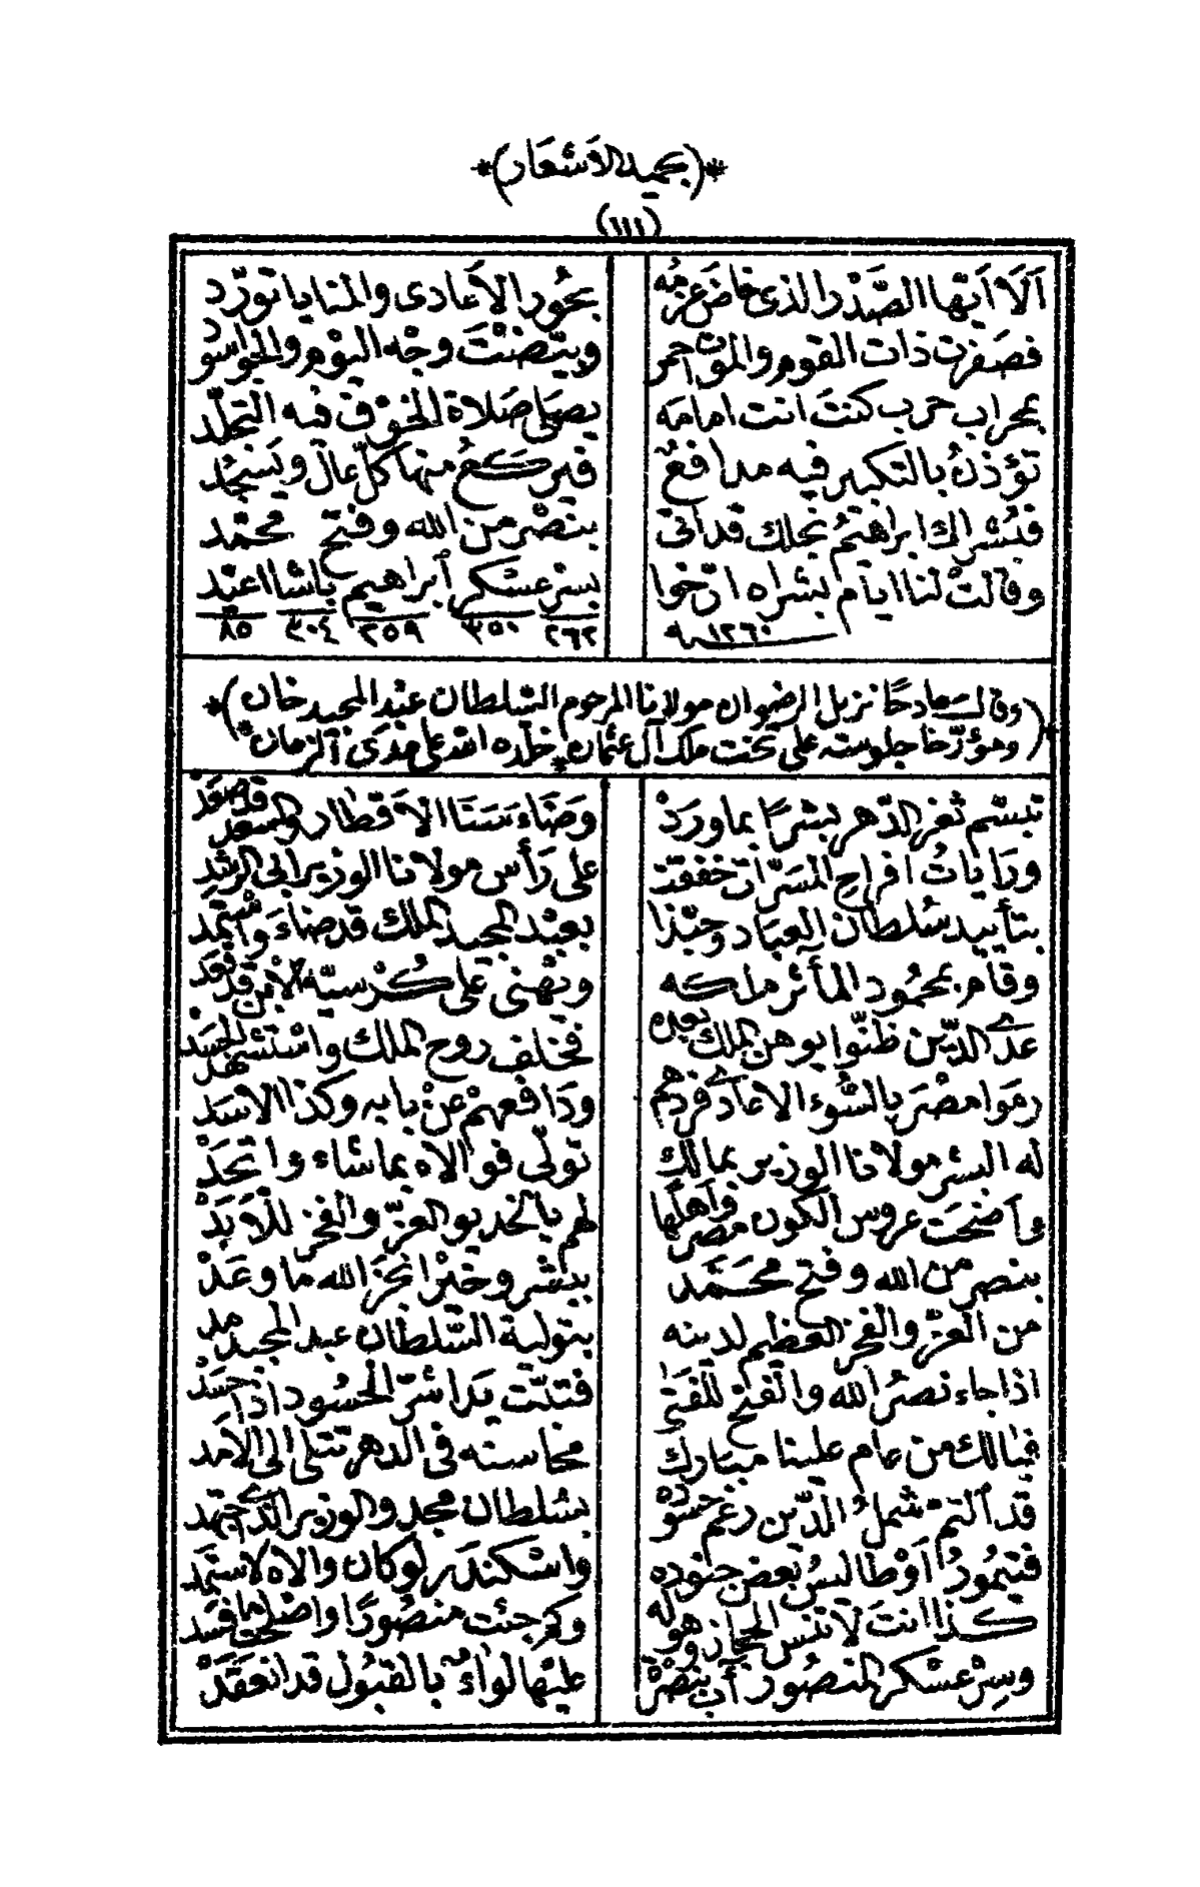 *(بحميد الأشعار)*
(١١١)
اَلَا اَيّها الصَّدْر الذى خاضَ عزمُه بحُور الأعادى والمنايا تورّد
فصَفرت ذات القوم والموت احمر وبيّضتَ وجْه اليوم والجوّ اسود
بمحراب حرب كنتَ انت امامَه يصلى صَلاة الخوْف فيه التجلّد
تؤذنُ بالتكبير فيه مدافعٌ فيركعُ منها كلّ عال ويَسْجُد
فبُشراك ابراهيمُ نجلك قد اتى بنصْر من الله وفتح محمّد
وقالتْ لنا ايام بشراه ارّخوا بسرّ عسْكر ابراهيم باشا اعْبد
سنة ١٢٦٠ ٢٦٢ ٣٥٠ ٢٥٩ ٣٠٤ ٨٥
(وقال مادحًا نزيل الرضوان مولانا المرحوم السّلطان عبْد المجيد خان)*
*(ومؤرّخا جلوسه على تخت ملك آل عثمان * خلّده الله على مدَى الزمان*
تبسّم ثغر الدّهر بشرًا بما ورَدْ وضَاءَ سَنَا الأقطار والسعد قد صعَد
ورَاياتُ افراحِ المسَرّات خفقتْ على رَأس مولانا الوزير ابى الرشد
بتأييد سُلطان العبَاد وحبّذا بعبْد المجيد الملك قد ضاءَ واسْتمد
وقام بمحمُود المآثر مَلكه ويهْنى على كُرْسيّه الأمن قد قعَد
عدَى الدّين ظنّوا يوهن الملك بعده فخلف روح الملك واسْتشهد الجسَد
رمَوا مصْرَ بالسُّوء الاعادى فردهم ودَافعهمْ عنْ بابه وكذا الاسَد
له البشر مولانا الوزير بمالك تولّى فوالاه بما شاء واتحَدْ
واَضحَت عروس الكون مصر واهلها لهم بالخديو العزّ والفخر للأبَدْ
بنصر من الله وفتح محَمّد يبشر وخيْرا نجزَ الله ما وعَدْ
من العزّ والفخر العظيم لدينه بتولية السّلطان عبد المجيد مد
اذا جاء نصرُ الله والفتح للفتى فتبّت يدا شرّ الحسُود اذا حسَدْ
فيا لك من عام علينا مبارك محَاسنه فى الدهر تتلى الى الأمَد
قد التمّ شملُ الدّين رغم حسوده بسُلطان مجد والوزير الذى اجتهد
فتيمُورُ اَوْطالسُ بَعض جنوده واسْكندَر لو كان والاه لاستَمد
كذا انتَ لا تنس الحجاز وهوله وكم جئت منصُورًا واصْلحت ما فسَد
وسِرْ عسْكر المنصُور آب بنصْرة عليْها لواءٌ بالقبُول قد انعقَدْ